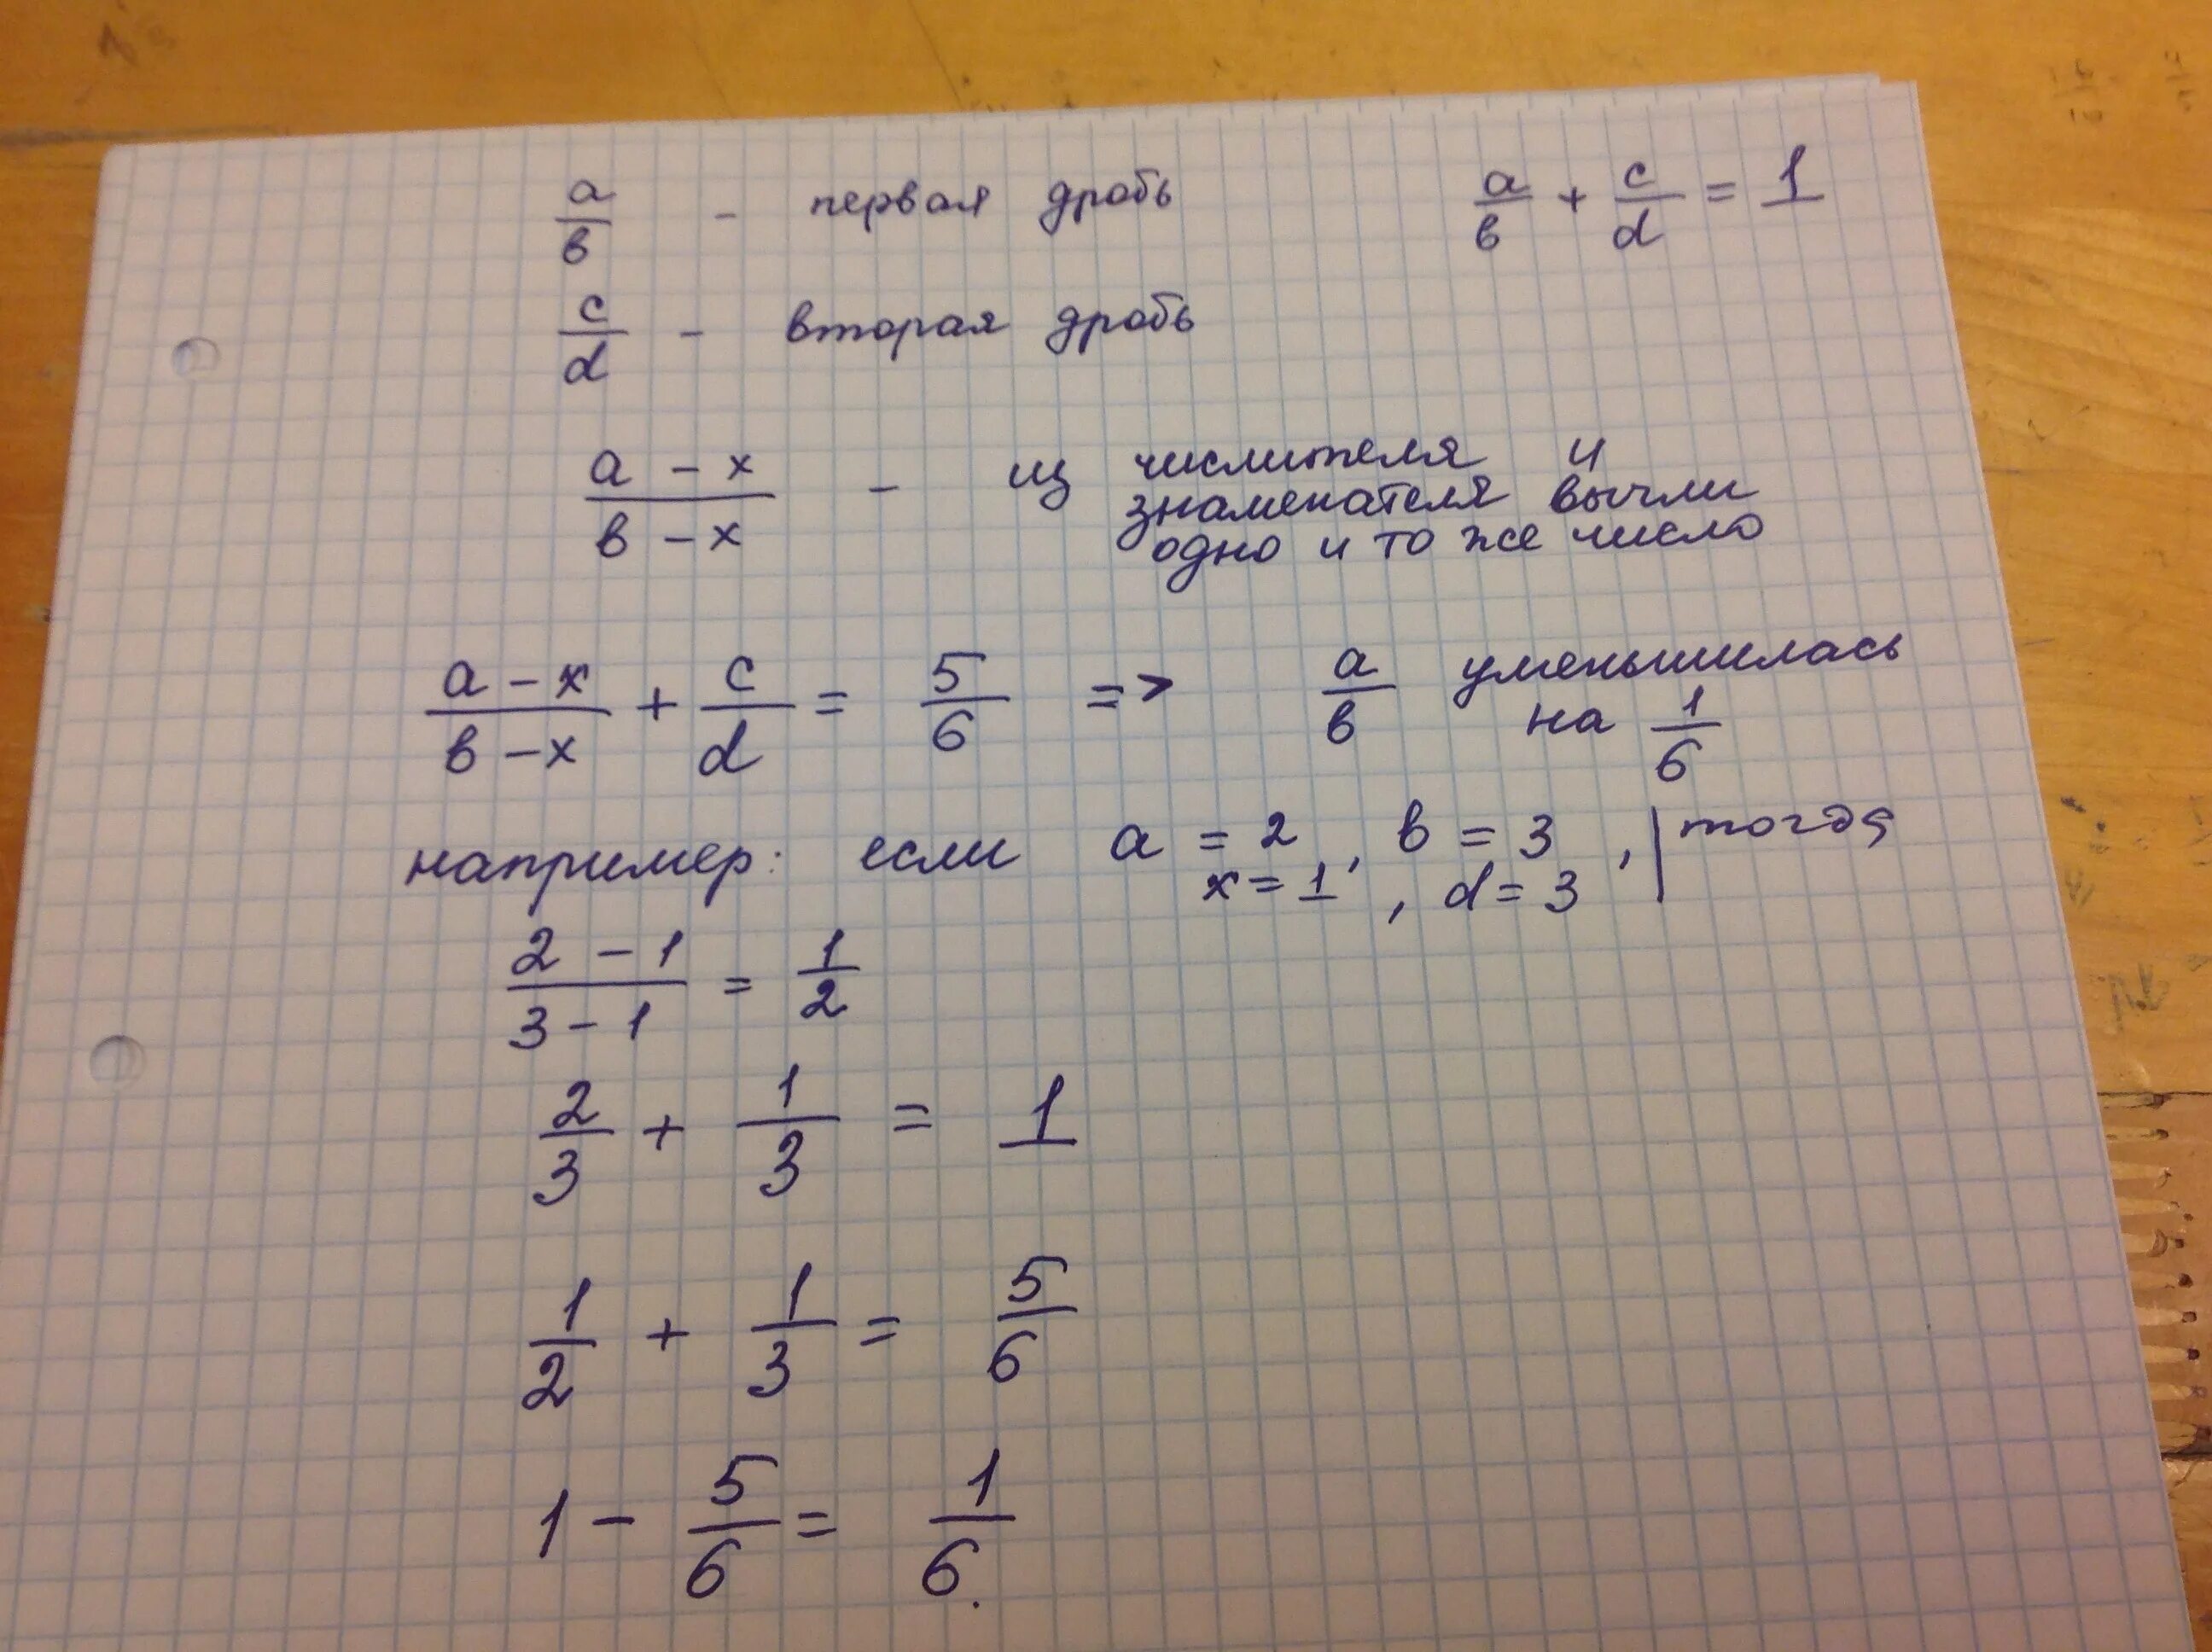 a/в - первая дробь a/в + c/d = 1
c/d - вторая дробь
a - x / в - x - из числителя и
знаменателя вычли
одно и то же число
a - x / в - x + c/d = 5/6 => a/в уменьшилась
на 1/6
например: если a = 2, в = 3, | тогда
x = 1, d = 3
2 - 1 / 3 - 1 = 1/2
2/3 + 1/3 = 1
1/2 + 1/3 = 5/6
1 - 5/6 = 1/6.